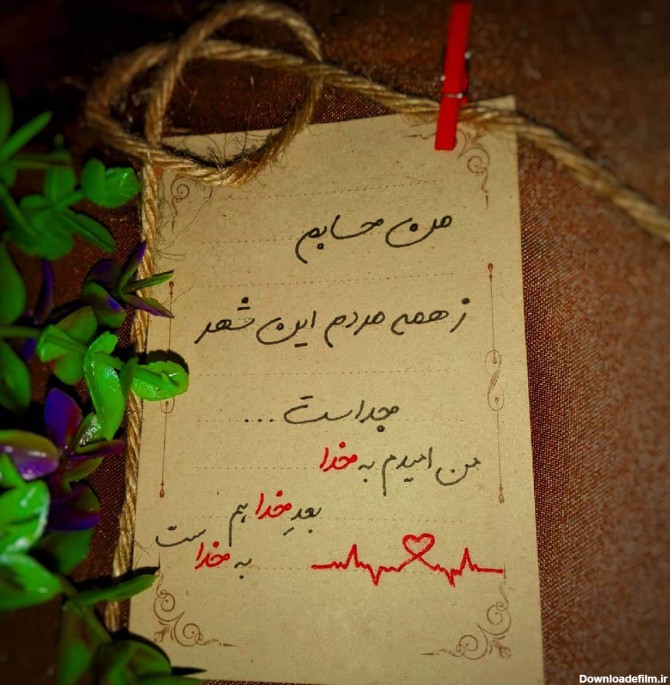 من حسابم
ز همه مردم این شهر
جداست ...
من امیدم به خدا
بعدِ خدا هم
ست
به خدا
Downloadefilm.ir